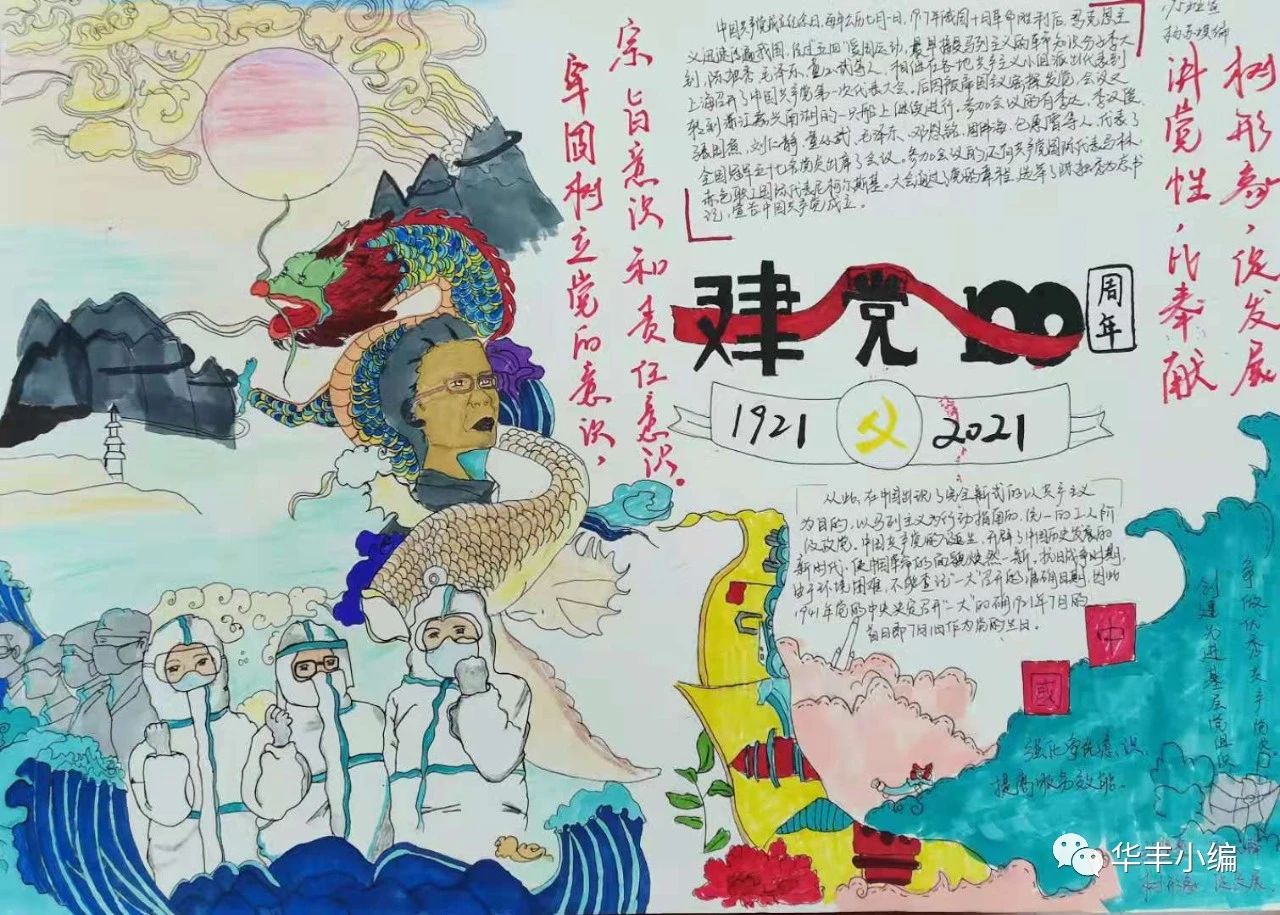 宗旨意识和责任意识。
牢固树立党的意识，
中国共产党成立纪念日,每年公历七月一日,1917年俄国十月革命胜利后,马克思主
义迅速传遍我国,经过五四爱国运动,最早接受马列主义的革命知识分子李大
钊、陈独秀、毛泽东、董必武等人,相继在各地共产主义小组派出代表到
上海召开了中国共产党第一次代表大会,后因被帝国会议密探发觉,会议又
转到浙江嘉兴南湖的一只船上继续进行。参加会议的有李达、李汉俊、
张国焘、刘仁静、董必武、毛泽东、邓恩铭、周佛海、包惠僧等人,代表了
全国五十七名党员出席了会议。参加会议的还有共产党国际代表马林、
赤色职工国际代表尼柯尔斯基。大会通过了党的章程,选举了陈独秀为总书
记,宣告中国共产党成立。
树形象,促发展
讲党性,比奉献
建党100
周年
1921
2021
从此,在中国出现了完全新式的以共产主义
为目的,以马列主义为行动指南的,统一的工人阶
级政党。中国共产党的诞生,开辟了中国历史发展的
新时代,使中国革命的面貌焕然一新。抗日战争时期,
由于环境困难,不能查记"一大"召开的准确日期,因此
1941年党的中央决定召开"一大"的确1921年7月的
首日即7月1日作为党的生日。
中
国
强化争优意识,
提高服务效能。
争做优秀共产党员
创建先进基层党组织
华丰小编